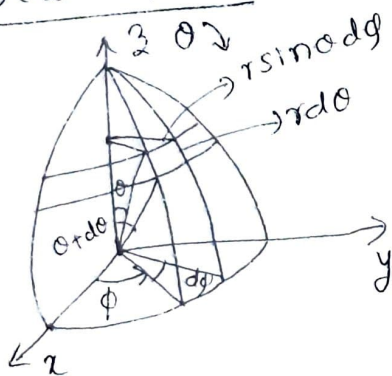 3 θ
r sinθ dφ
r dθ
θ
θ+dθ
y
φ
dφ
x